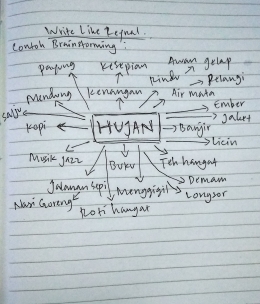 Write Like Zeynal.
Contoh Brainstorming :
payung
kesepian
Awan gelap
Rindu
Pelangi
Mendung
Kenangan
Air mata
Ember
salju
jaket
Kopi
HUJAN
Banjir
Licin
Musik jazz
Buku
Teh hangat
Jalanan sepi
Menggigil
Demam
Nasi Goreng
Longsor
Roti hangat